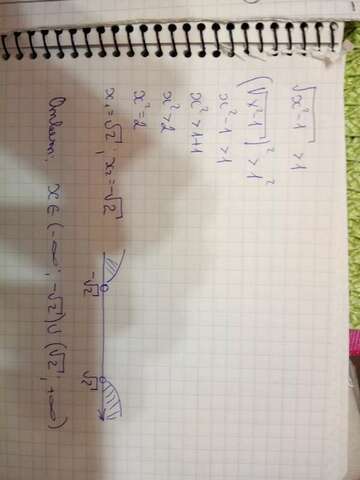 √x²-1 > 1
(√x²-1)² > 1²
x²-1 > 1
x² > 1+1
x² > 2
x² = 2
x₁ = √2; x₂ = -√2
-√2 √2
Ответ: x ∈ (-∞; -√2) ∪ (√2; +∞)